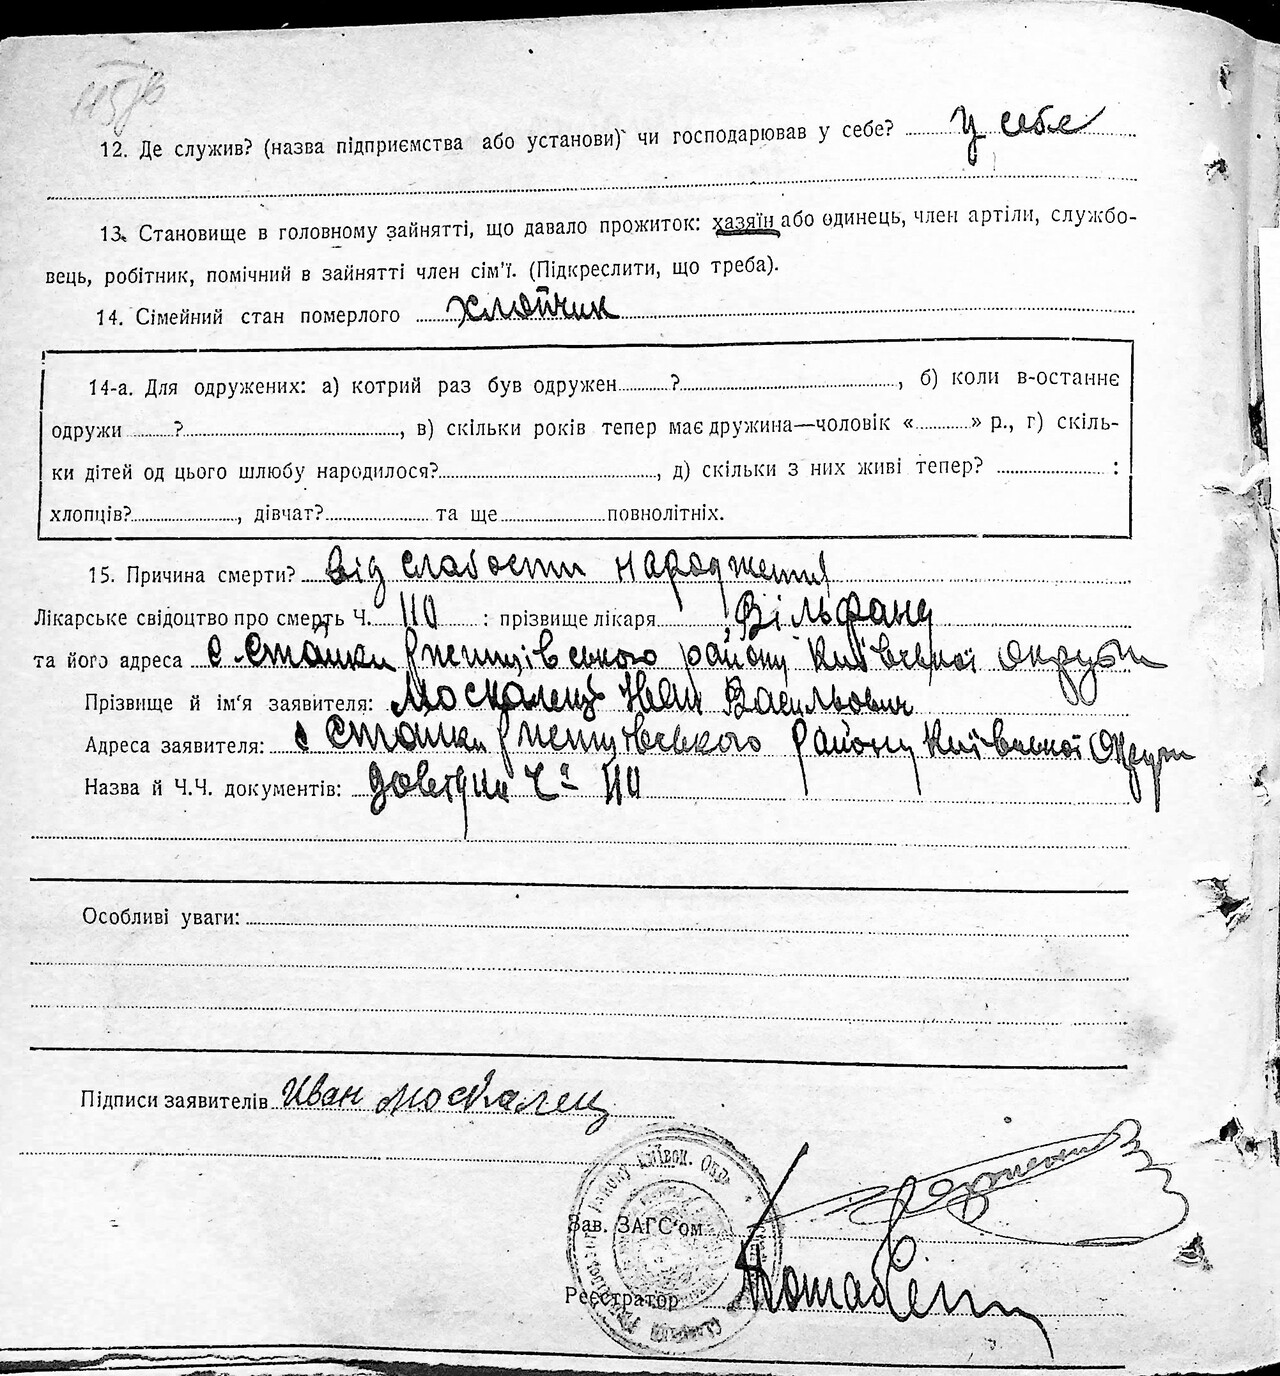 12. Де служив? (назва підприємства або установи) чи господарював у себе? у себе
13. Становище в головному зайнятті, що давало прожиток: хазяїн або одинець, член артіли, службо-
вець, робітник, помічний в зайнятті член сім'ї. (Підкреслити, що треба).
14. Сімейний стан померлого хлопчик
14-а. Для одружених: а) котрий раз був одружен ? , б) коли в-останнє
одружи ? , в) скільки років тепер має дружина—чоловік « » р., г) скіль-
ки дітей од цього шлюбу народилося? , д) скільки з них живі тепер? :
хлопців? , дівчат? та ще повнолітніх.
15. Причина смерти? від слабости народження
Лікарське свідоцтво про смерть Ч. 110 : прізвище лікаря Вільфанд
та його адреса с Стайки Ржищівського району Київської округи
Прізвище й ім'я заявителя: Москалець Іван Васильович
Адреса заявителя: с Стайки Ржищівського району Київської Округи
Назва й Ч.Ч. документів: довідка Ч 110
Особливі уваги:
Підписи заявителів Иван Москалец
Зав. ЗАГС'ом
Реєстратор